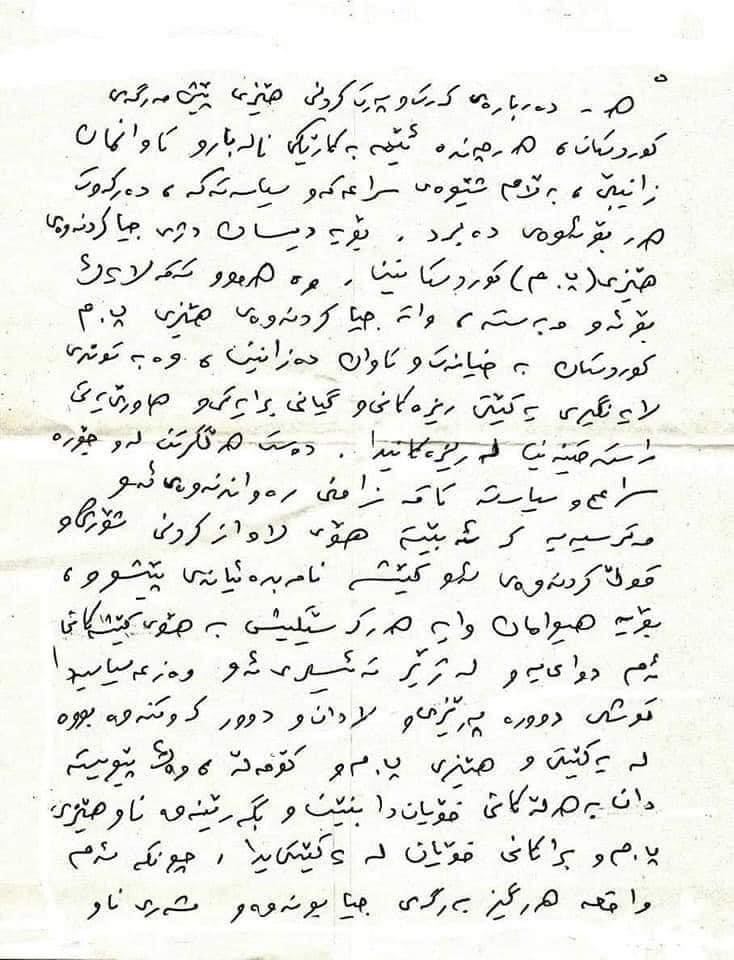 ٥
هـ - دەربارەی کەرت و پەرت کردنی هێزی پێشمەرگەی
کوردستان، هەرچەندە ئێمە بە کارێکی نالەبار و تاوانمان
زانیبێ، بەڵام شێوەی سراعەکە و سیاسەتەکە، دەرکەوت
هەر بۆ ئەوەی دەبرد. بۆیە دیسان دژی جیاکردنەوەی
هێزی (پ.م) کوردستانین، وە هەموو تەقەلایەک
بۆ ئەو مەبەستە، واتە جیاکردنەوەی هێزی پ.م
کوردستان بە خیانەت و تاوان دەزانین، وە بە توندی
لایەنگیری یەکێتی ریزەکانی و گیانی برایەتی و هاوڕێیەتی
راستەقینە لە ریزەکانیدا. دەست هەڵگرتن لەو جۆرە
سراع و سیاسەتە تاقە زامنی رەواندنەوەی ئەو
مەترسیەیە کە ئەبێتە هۆی لاواز کردنی شۆڕش و
قوڵ کردنەوەی ئەو کێشە نامەبدەئیانەی پێشوو،
بۆیە هیوامان وایە هەرکەسێکیش بە هۆی کێشەکانی
ئەم دواییە و لە ژێر تەئسیری ئەو وەزعە سیاسیدا
توشی دوورەپەرێزی و لادان و دوورکەوتنەوە بووە
لە یەکێتی و هێزی پ.م و کۆمەڵە، وەک پێویستە
دان بە هەڵەکانی خۆیاندا بنێن و بگەڕێنەوە ناو هێزی
پ.م و براکانی خۆیان لە یەکێتیدا، چونکە ئەم
واقعە هەرگیز بەرگەی جیابونەوە و شەڕی ناو